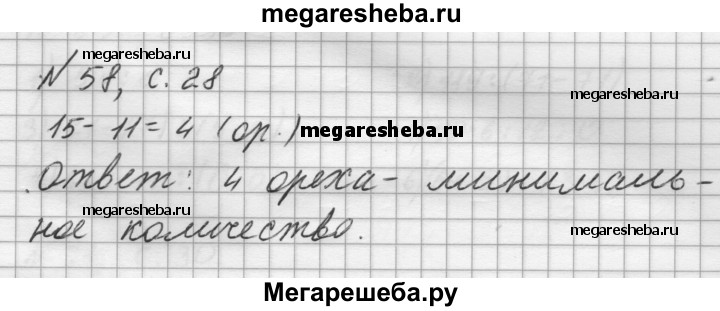 megaresheba.ru
megaresheba.ru
№ 58, с. 28
megaresheba.ru
15 - 11 = 4 (ор.) megaresheba.ru
Ответ: 4 ореха - минималь-
megaresheba.ru megaresheba.ru
ное количество.
Мегарешеба.ру